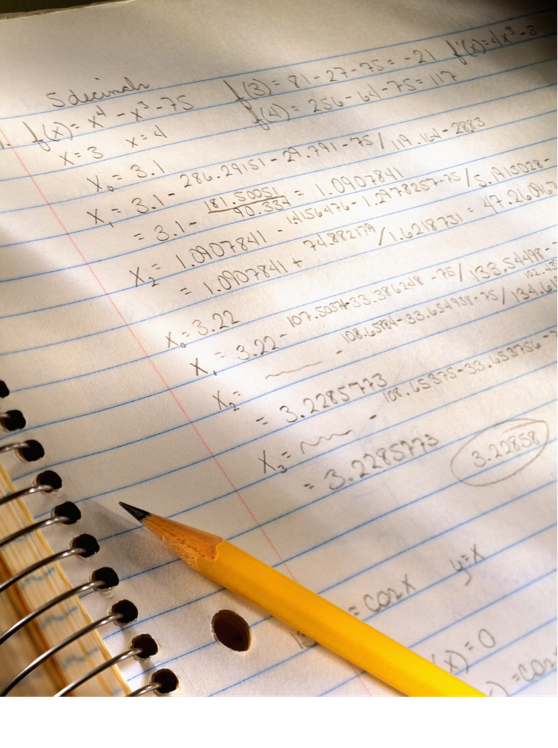 5 decimals
1. f(x) = x⁴ - x³ - 75 f(3) = 81 - 27 - 75 = -21 f'(x) = 4x³ - 3
x = 3 x = 4 f(4) = 256 - 64 - 75 = 117
X₀ = 3.1
X₁ = 3.1 - 286.29151 - 29.791 - 75 / 119.164 - 28.83
= 3.1 - 181.50051 / 90.334 = 1.0907841
X₂ = 1.0907841 - 1.4156476 - 1.2978257 - 75 /
= 1.0907841 + 74.882179 / 1.6218731 = 47.2606
X₀ = 3.22
X₁ = 3.22 - 107.5057 - 33.386248 - 75 / 133.54498 -
X₂ = - 108.65884 - 33.654938 - 75 / 134.61
= 3.2285773
X₃ = - 108.65375 - 33.653756 -
= 3.2285773 3.22858
= cosx y = x
(x) = 0
) = cos